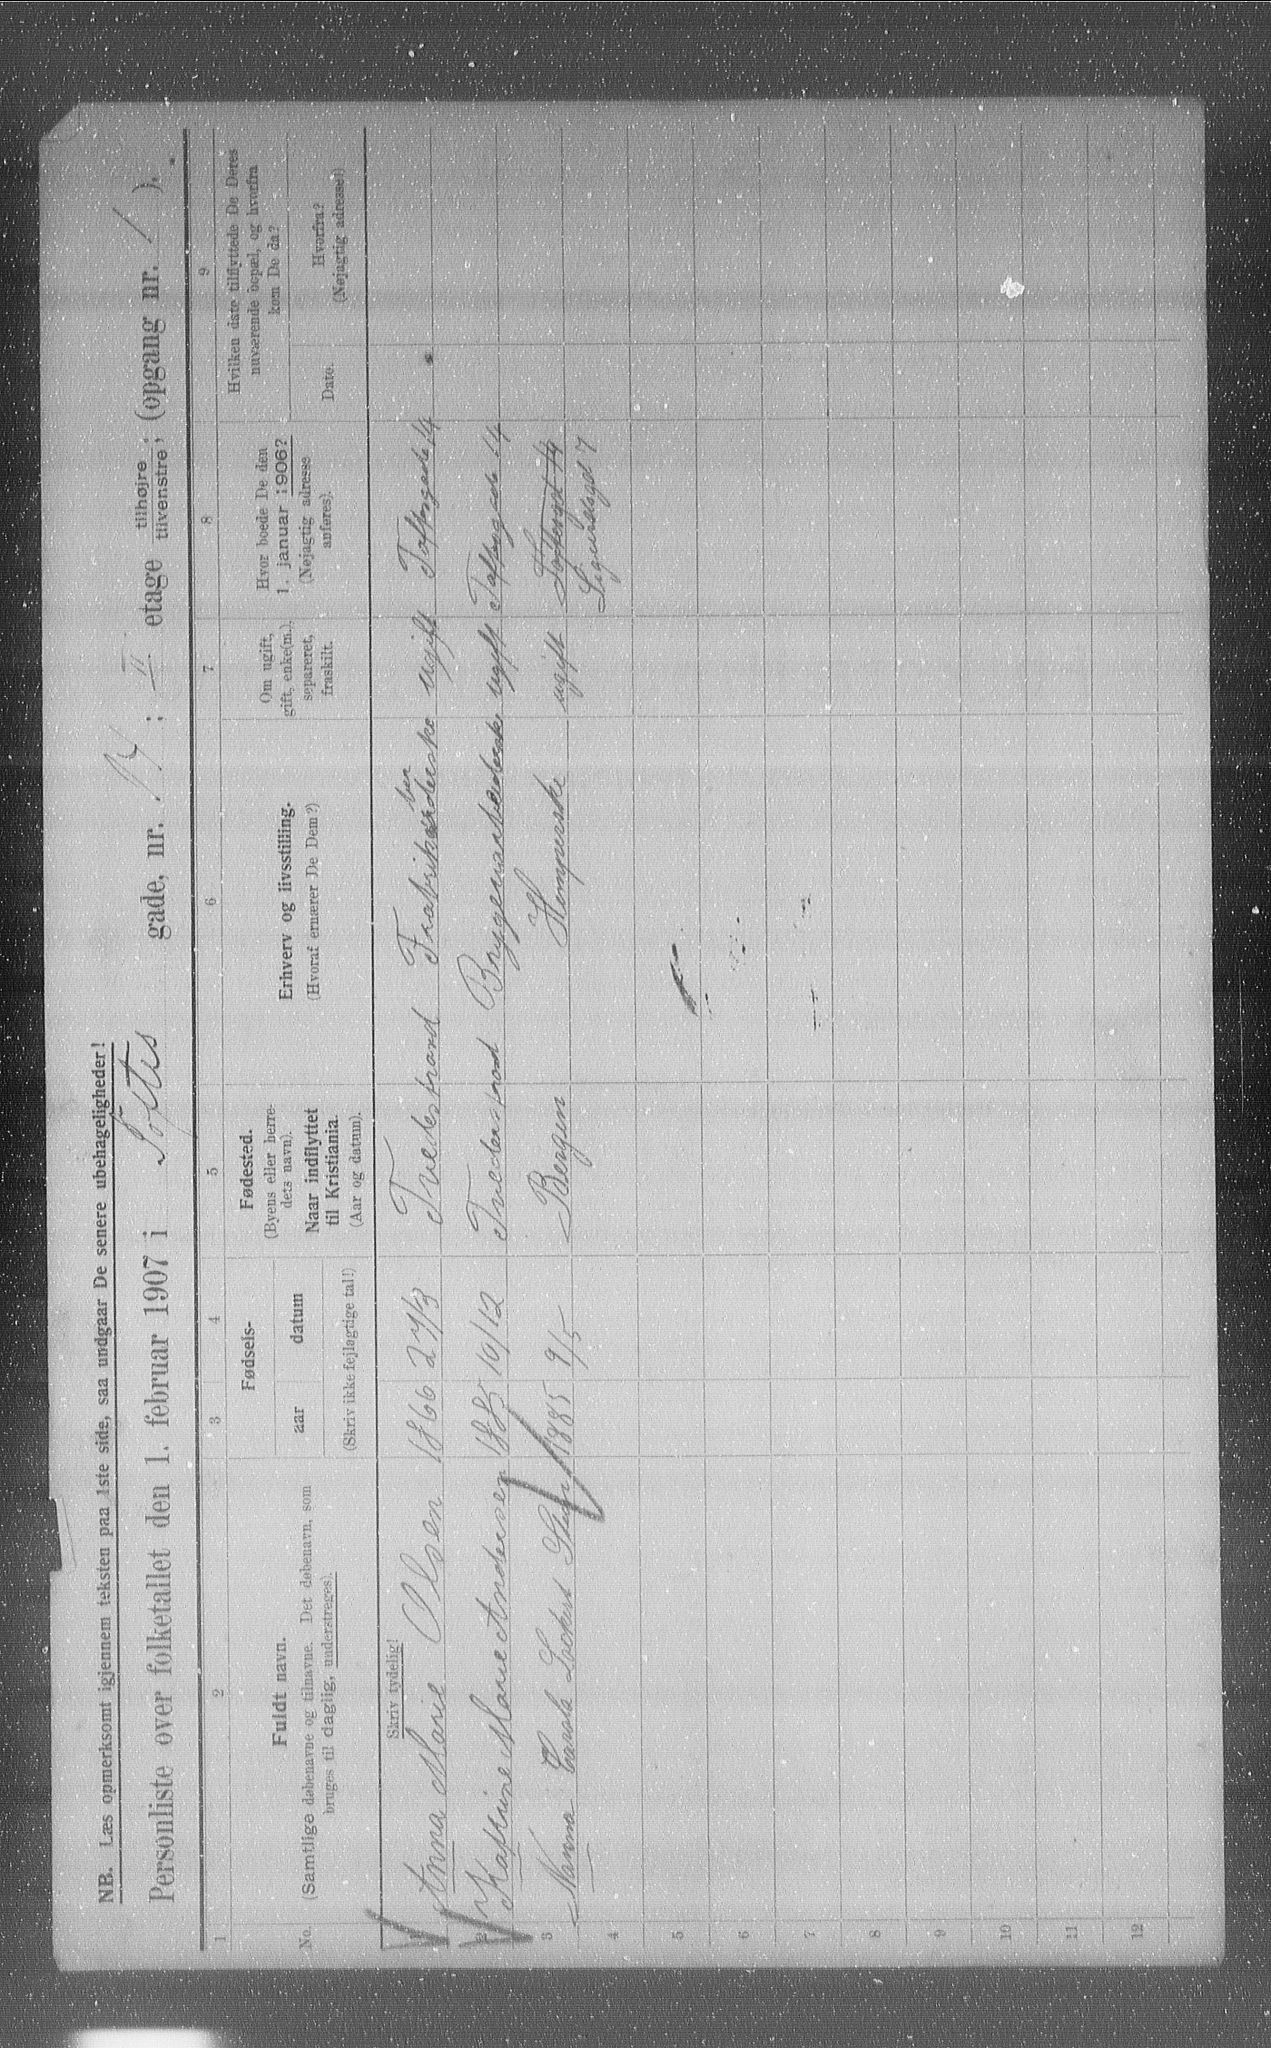 NB. Læs opmerksomt igjennem teksten paa 1ste side, saa undgaar De senere ubehageligheder!
Personliste over folketallet den 1. februar 1907 i Toftes gade, nr. 14; II etage tilhøjre tilvenstre; (opgang nr. 1).
1 2 3 4 5 6 7 8 9
No.
Fuldt navn.
(Samtlige døbenavne og tilnavne. Det døbenavn, som
bruges til daglig, understreges).
Fødsels-
aar
datum
(Skriv ikke fejlagtige tal!)
Fødested.
(Byens eller herre-
dets navn).
Naar indflyttet
til Kristiania.
(Aar og datum).
Erhverv og livsstilling.
(Hvoraf ernærer De Dem?)
Om ugift,
gift, enke(m.),
separeret,
fraskilt.
Hvor boede De den
1. januar 1906?
(Nøjagtig adresse
anføres).
Hvilken date tilflyttede De Deres
nuværende bopæl, og hvorfra
kom De da?
Date.
Hvorfra?
(Nøjagtig adresse!)
Skriv tydelig!
1 Anna Marie Olsen 1866 27/3 Tvedestrand ugift Toftesgade 14
2 Kathrine Marie Andersen 1885 10/12 Tvedestrand ugift Toftesgade 14
3 Nanna 1885 9/5 Bergen ugift Toftesgd 14
7
4
5
6
7
8
9
10
11
12